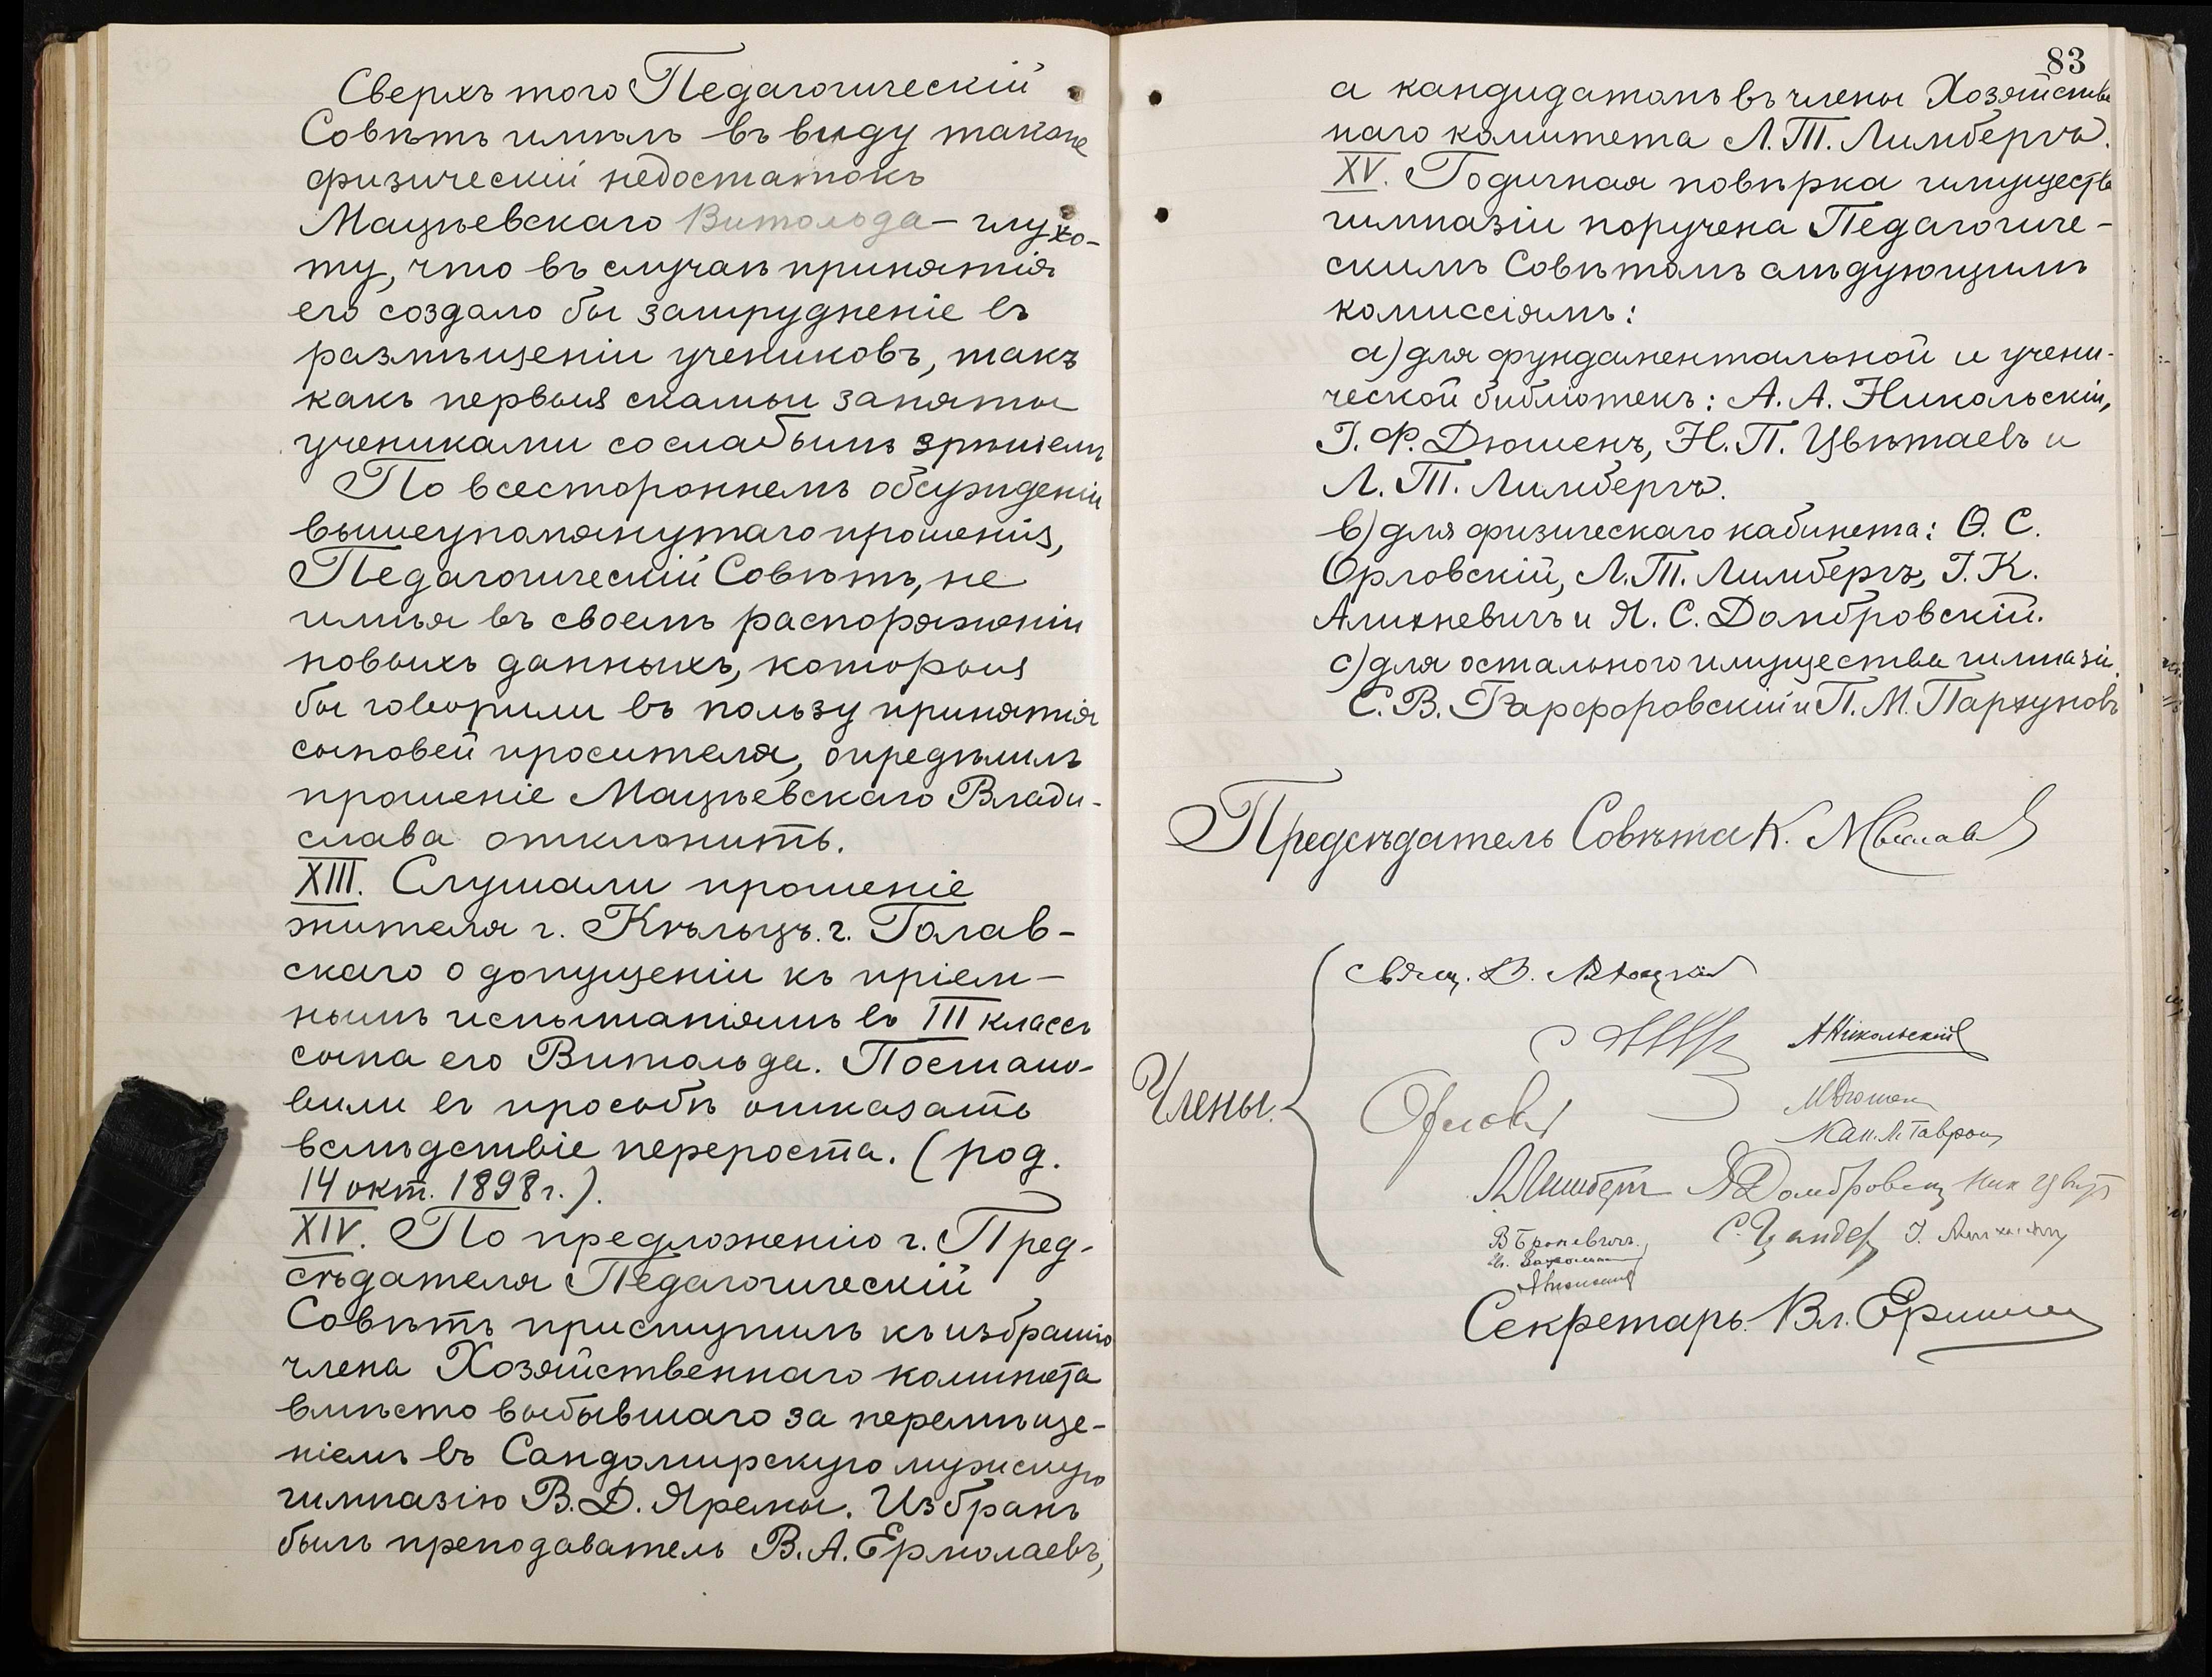 Сверхъ того Педагогическій
Совѣтъ имѣлъ въ виду также
физическій недостатокъ
Мацѣевскаго Витольда — глухо-
ту, что въ случаѣ принятія
его создало бы затрудненіе въ
размѣщеніи учениковъ, такъ
какъ первыя скамьи заняты
учениками со слабымъ зрѣніемъ
По всестороннемъ обсужденіи
вышеупомянутаго прошенія,
Педагогическій Совѣтъ, не
имѣя въ своемъ распоряженіи
новыхъ данныхъ, которыя
бы говорили въ пользу принятія
сыновей просителя, опредѣлилъ
прошеніе Мацѣевскаго Влади-
слава отклонить.
XIII. Слушали прошеніе
жителя г. Кѣльцъ г. Голав-
скаго о допущеніи къ пріем-
нымъ испытаніямъ въ III классъ
сына его Витольда. Постано-
вили въ просьбѣ отказать
вслѣдствіе переростa. (род.
14 окт. 1898 г.).
XIV. По предложенію г. Пред-
сѣдателя Педагогическій
Совѣтъ приступилъ къ избранію
члена Хозяйственнаго комитета
вмѣсто выбывшаго за перемѣще-
ніемъ въ Сандомирскую мужскую
гимназію В.Д. Яремы. Избранъ
былъ преподаватель В.А. Ермолаевъ,
83
а кандидатомъ въ члены Хозяйствен
наго комитета Л.Т. Лимбергъ.
XV. Годичная повѣрка имущества
гимназіи поручена Педагогиче-
скимъ Совѣтомъ слѣдующимъ
комиссіямъ:
а) для фундаментальной и учени-
ческой библіотекъ: А.А. Никольскій,
І.Ф. Дюшенъ, Н.П. Цвѣтаевъ и
Л.Т. Лимбергъ.
в) для физическаго кабинета: Ѳ.С.
Орловскій, Л.Т. Лимбергъ, І.К.
Алихневичъ и Я.С. Домбровскій.
с) для остального имущества гимназіи
С.В. Фарфоровскій и П.М. Пархуновъ
Предсѣдатель Совѣта К.
Свящ. В.
А Никольскій
Члены.
Орловс
Л Лимбергъ Я Домбровскі Ник Цвѣт
В Броневичъ. С. Цандер І.
Секретарь. Вл.